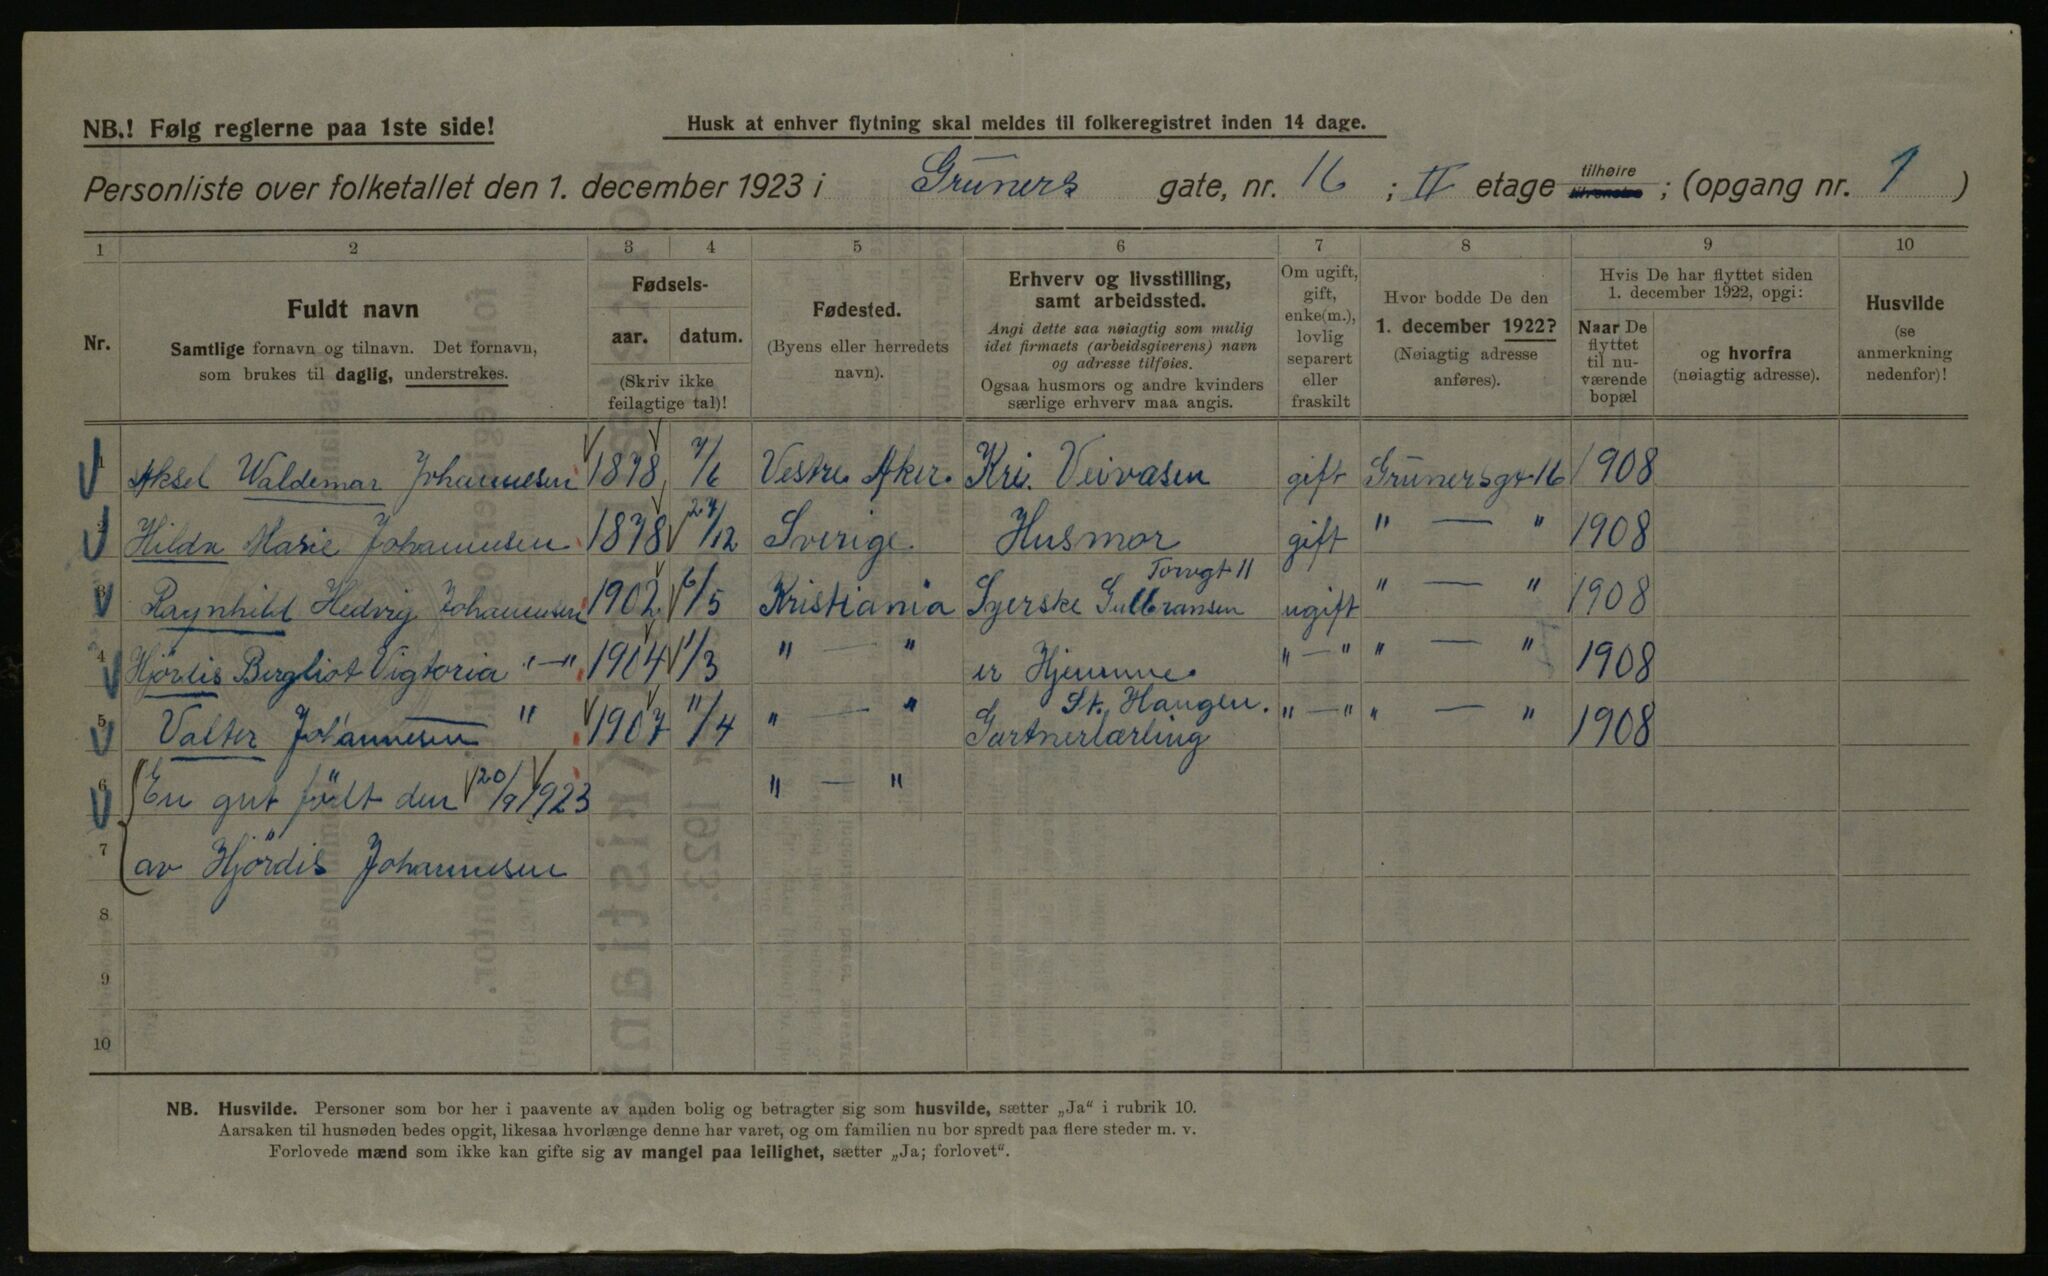 NB.! Følg reglerne paa 1ste side!
Husk at enhver flytning skal meldes til folkeregistret inden 14 dage.
Personliste over folketallet den 1. december 1923 i Grüners gate, nr. 16 ; II etage tilhøire tilvenstre ; (opgang nr. 1 )
1 2 3 4 5 6 7 8 9 10
Nr.
Fuldt navn
Samtlige fornavn og tilnavn. Det fornavn,
som brukes til daglig, understrekes.
Fødsels-
aar. datum.
(Skriv ikke
feilagtige tal)!
Fødested.
(Byens eller herredets
navn).
Erhverv og livsstilling,
samt arbeidssted.
Angi dette saa nøiagtig som mulig
idet firmaets (arbeidsgiverens) navn
og adresse tilføies.
Ogsaa husmors og andre kvinders
særlige erhverv maa angis.
Om ugift,
gift,
enke(m.),
lovlig
separert
eller
fraskilt
Hvor bodde De den
1. december 1922?
(Nøiagtig adresse
anføres).
Hvis De har flyttet siden
1. december 1922, opgi:
Naar De
flyttet
til nu-
værende
bopæl
og hvorfra
(nøiagtig adresse).
Husvilde
(se
anmerkning
nedenfor)!
1 Aksel Waldemar Johannesen 1878 7/6 Vestre Aker. Kri. Veivæsen gift Grünersgt 16 1908
2 Hilda Marie Johannesen 1878 27/12 Sverige. Husmor gift " — " 1908
Torvgt 11
3 Ragnhild Hedvig Johannesen 1902 6/5 Kristiania Syerske Gulbransen ugift " — " 1908
4 Hjördis Bergliot Vigtoria "—" 1904 1/3 " — " er Hjemme. "—" " — " 1908
St. Haugen.
5 Valter Johannesen " 1907 11/4 " — " Gartnerlærling "—" " — " 1908
6 En gut födt den 20/9 1923 " — "
7 av Hjördis Johannesen
8
9
10
NB. Husvilde. Personer som bor her i paavente av anden bolig og betragter sig som husvilde, sætter „Ja“ i rubrik 10.
Aarsaken til husnøden bedes opgit, likesaa hvorlænge denne har varet, og om familien nu bor spredt paa flere steder m. v.
Forlovede mænd som ikke kan gifte sig av mangel paa leilighet, sætter „Ja; forlovet“.